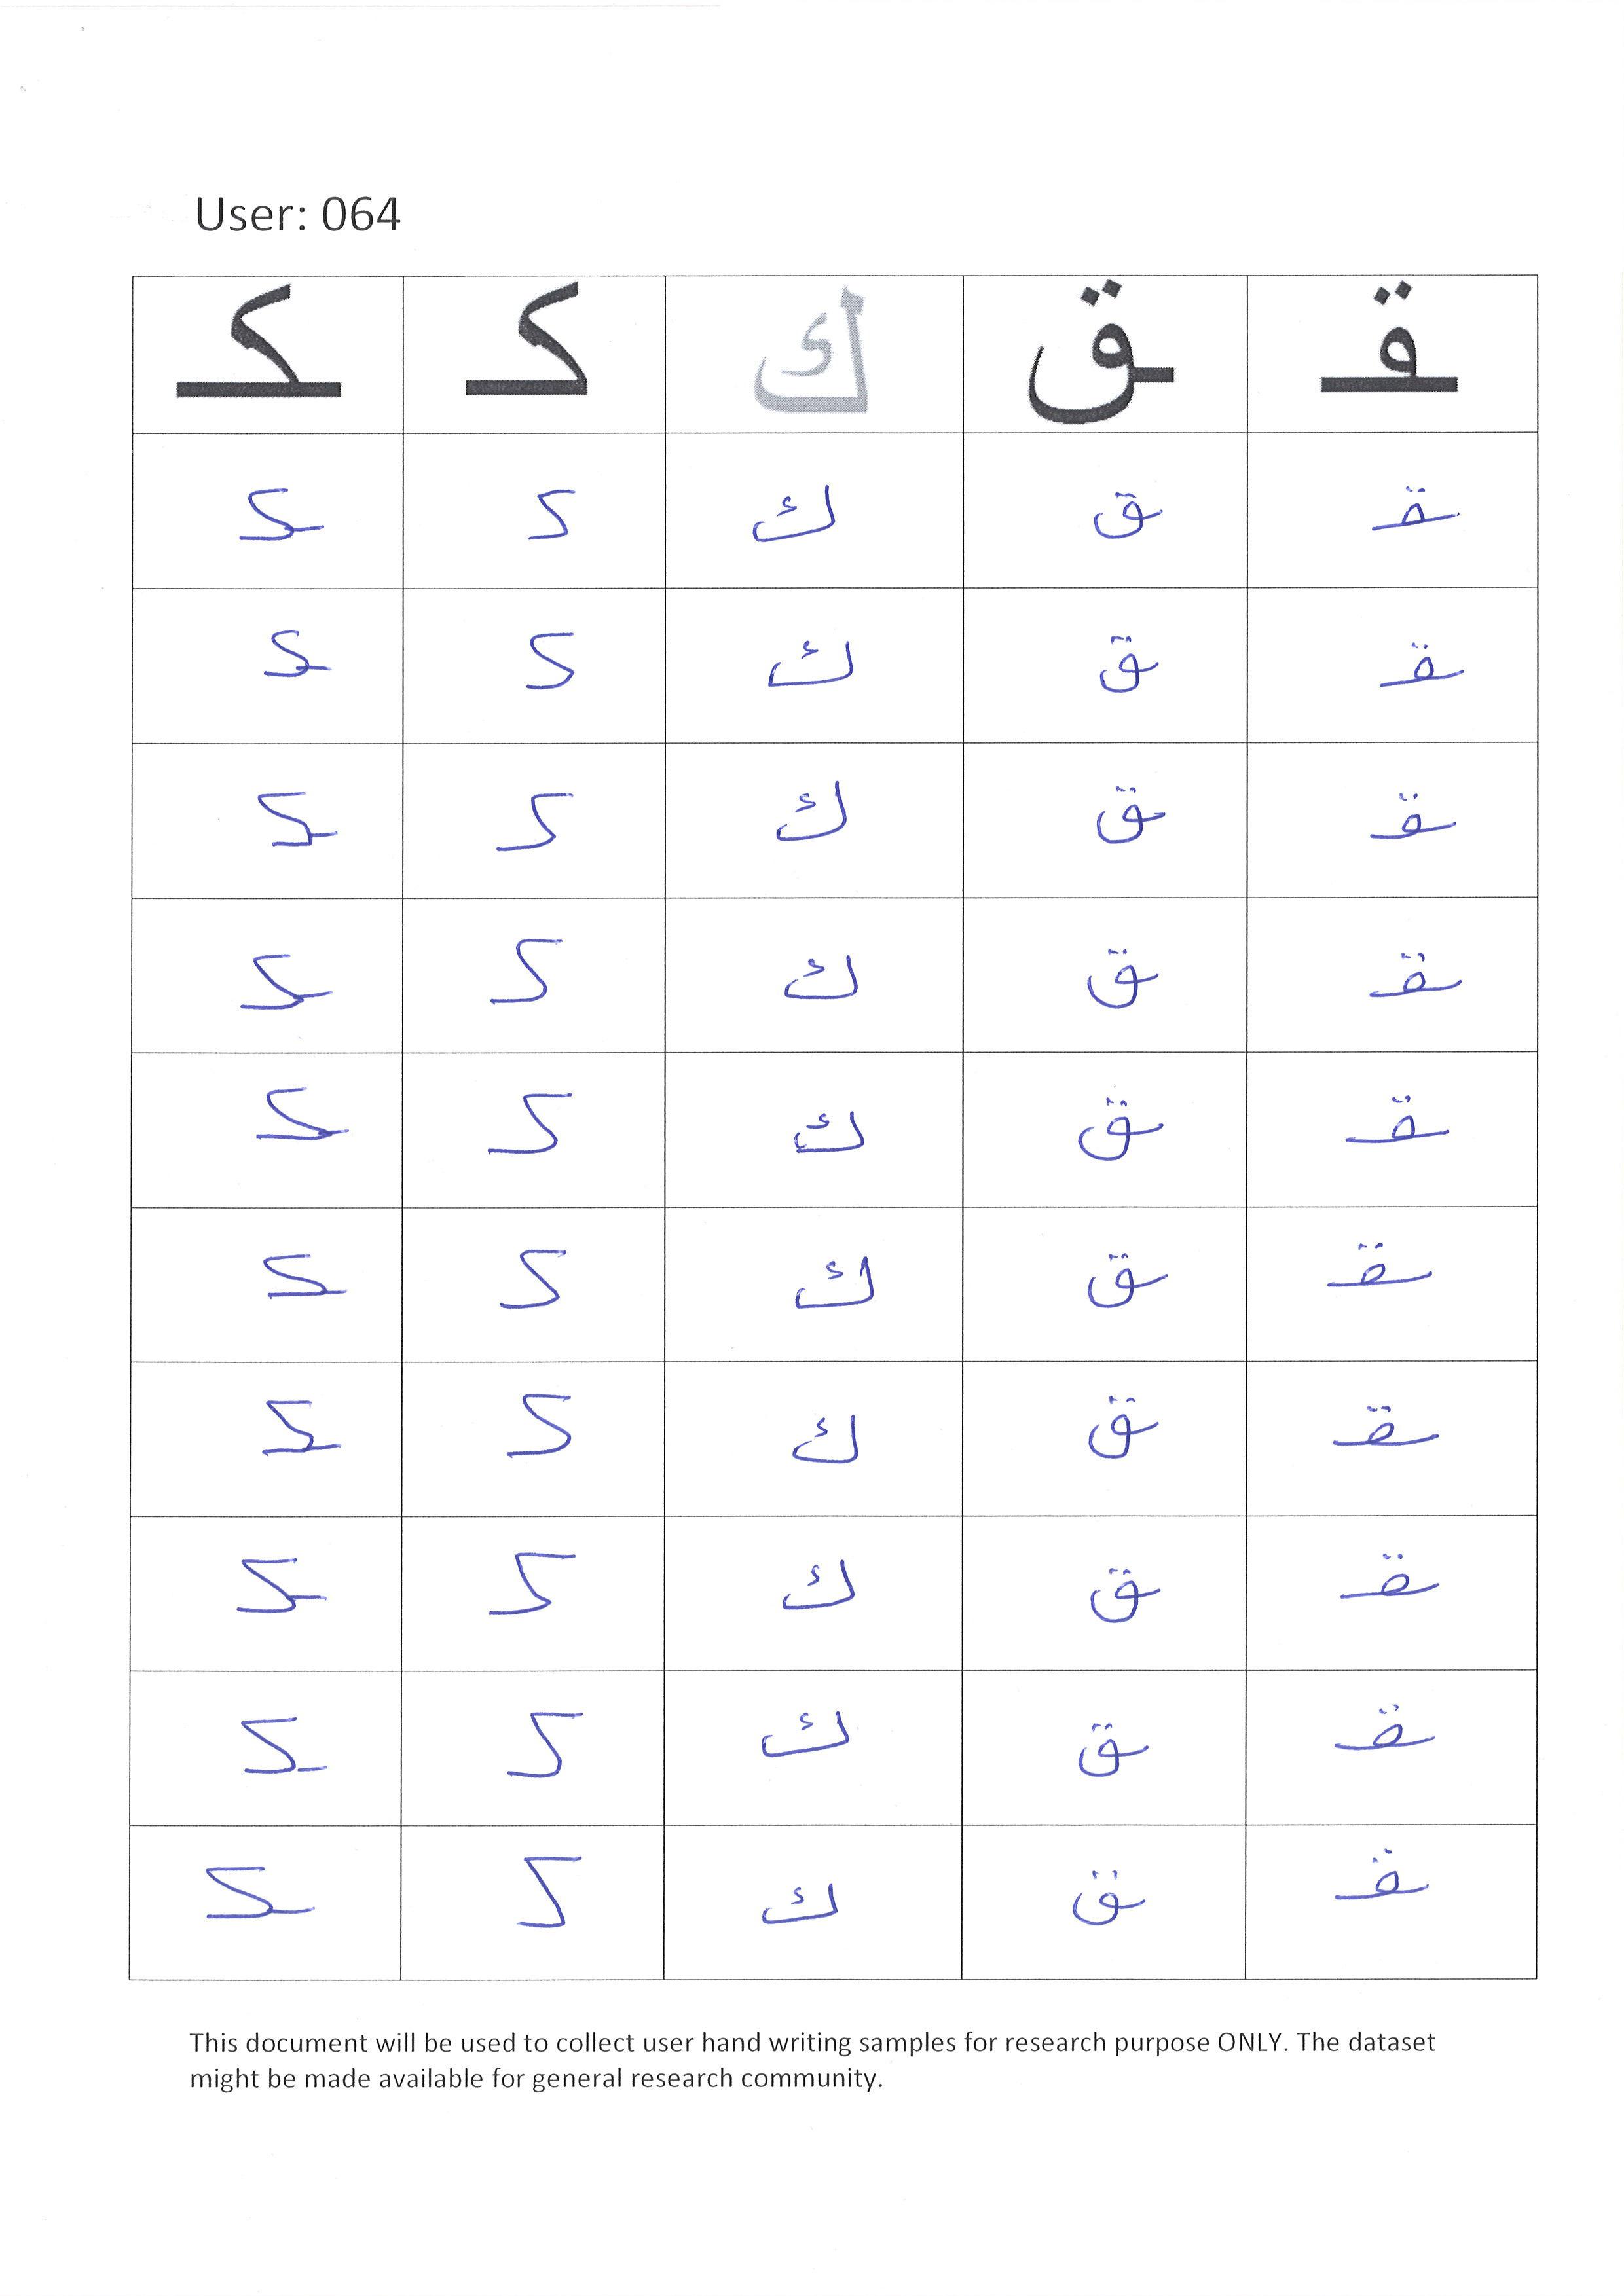 User: 064
ـقـ ـق ك كـ ـكـ
ـقـ ـق ك كـ ـكـ
ـقـ ـق ك كـ ـكـ
ـقـ ـق ك كـ ـكـ
ـقـ ـق ك كـ ـكـ
ـقـ ـق ك كـ ـكـ
ـقـ ـق ك كـ ـكـ
ـقـ ـق ك كـ ـكـ
ـقـ ـق ك كـ ـكـ
ـقـ ـق ك كـ ـكـ
ـقـ ـق ك كـ ـكـ
This document will be used to collect user hand writing samples for research purpose ONLY. The dataset
might be made available for general research community.